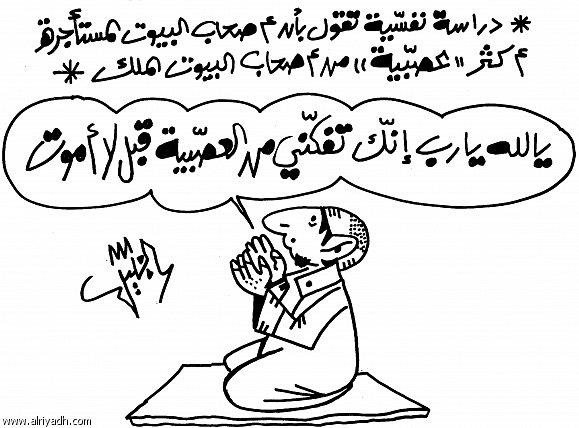 * دراسة نفسّية تقول بأن أصحاب البيوت المستأجرة
أكثر "عصبّية" من أصحاب البيوت الملك *
يالله يارب إنّك تفكنّي من العصبّية قبل لا أموت
www.alriyadh.com